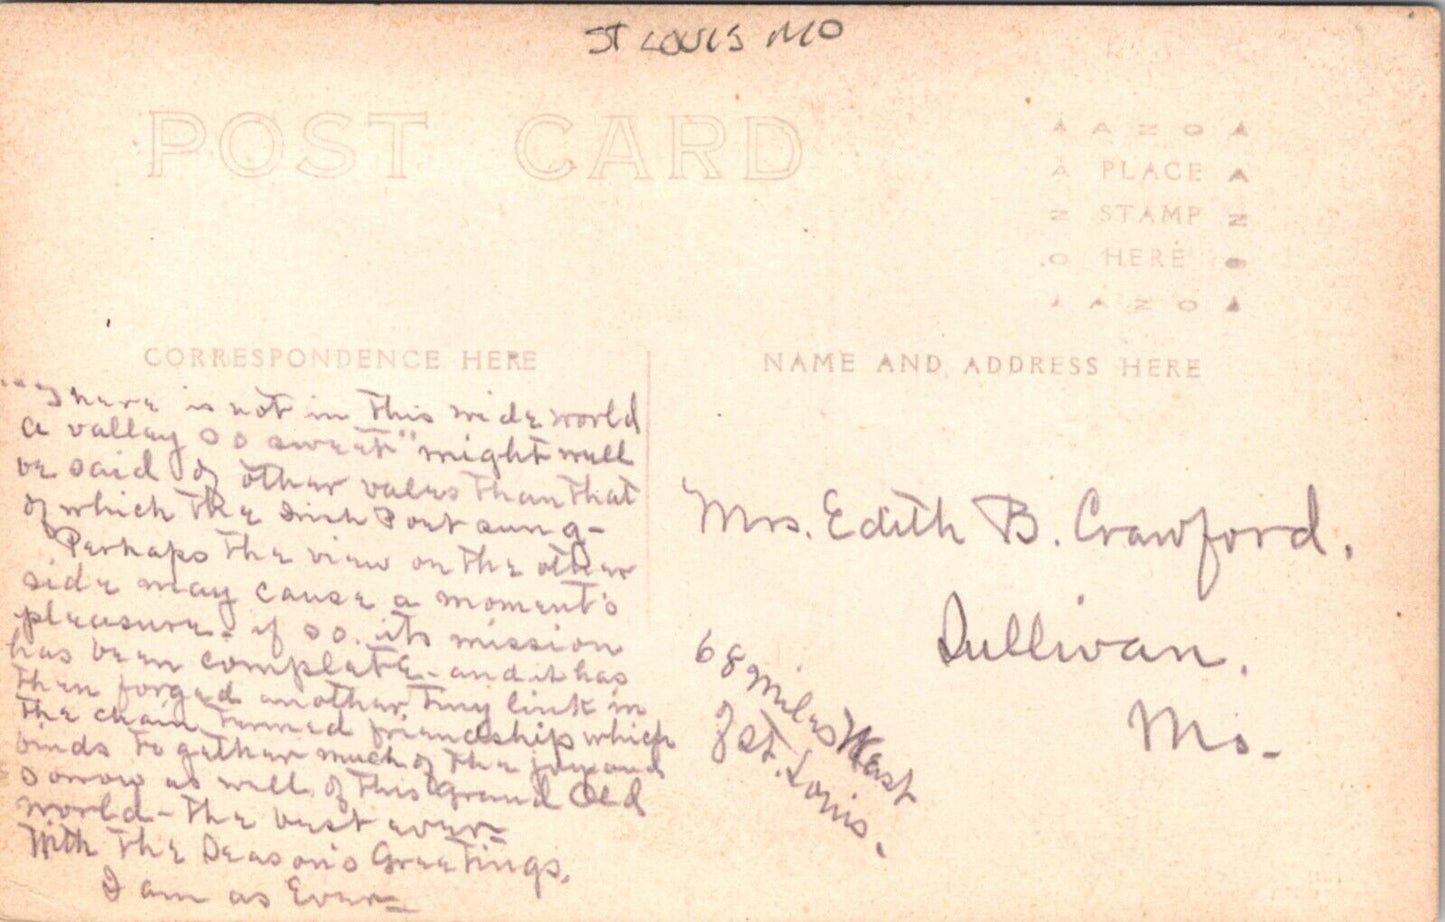 ST LOUIS MO
POST CARD
A A Z O A
A PLACE A
Z STAMP Z
O HERE O
A A Z O A
CORRESPONDENCE HERE
NAME AND ADDRESS HERE
there is not in this wide world
a valley so sweet" might well
be said of other vales than that
of which the Irish Poet sung-
Perhaps the view on the other
side may cause a moment's
pleasure- if so. its mission
has been complete- and it has
then forged another tiny link in
the chain termed friendship which
binds together much of the joy and
sorrow as well of this Grand Old
world- the best ever-
With the Season's Greetings.
I am as Ever-
Mrs. Edith B. Crawford.
Sullivan.
Mo-
68 miles West
of St. Louis.